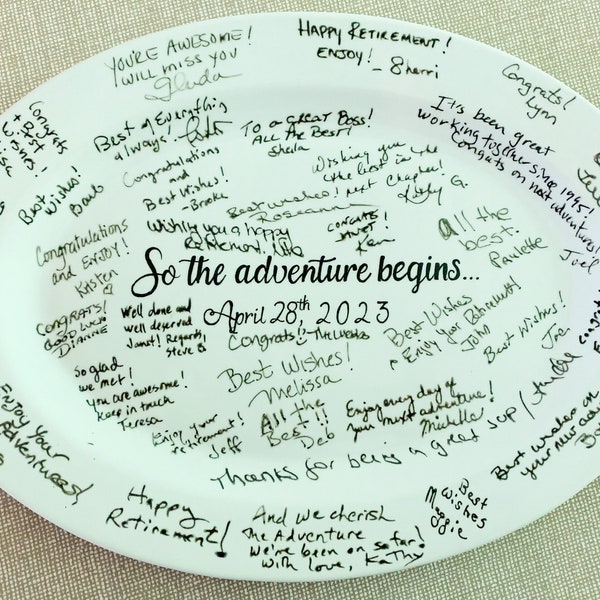 YOU'RE AWESOME!
WILL MISS YOU
HAPPY RETIREMENT!
ENJOY!
- Sherri
Congrats!
Lynn
Congrats
Best of Everything
always!
To a GREAT Boss!
All the Best!
Sheila
It's been great
working together since 1995!
Congrats on next adventures!
Joel
Best
Wishes!
Barb
Congratulations
and
Best Wishes!
- Brooke
Wishing you
the best in the
next Chapter!
Kathy G.
Best wishes!
Roseann
Congratulations
and ENJOY!
Kristen
Wishing you a happy
retirement!
CONGRATS
JANET!
Ken
All the
best.
Paulette
So the adventure begins...
April 28th 2023
CONGRATS!
GOOD LUCK
DIANNE
Well done and
well deserved
Janet! Regards,
Steve B
Congrats!
Best Wishes
Enjoy Your Retirement!
John
Best Wishes!
Joe
So glad
we met!
you are awesome!
Keep in touch
Teresa
Best Wishes!
Melissa
Enjoy your
retirement!
Jeff
All the
Best!!
Deb
Enjoy every day of
your next adventure!
Michelle
Thanks for being a great sup /
ENJOY YOUR
Adventures!
Best wishes on
your new
Happy
Retirement!
And we cherish
The Adventure
we've been on so far!
With love, Kathy
Best
Wishes
Maggie